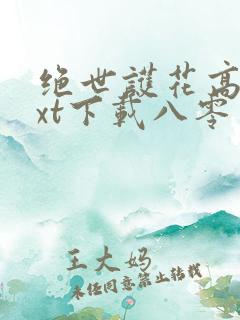 绝世護花高
xt下載八零
王大妈
未经同意禁止转载